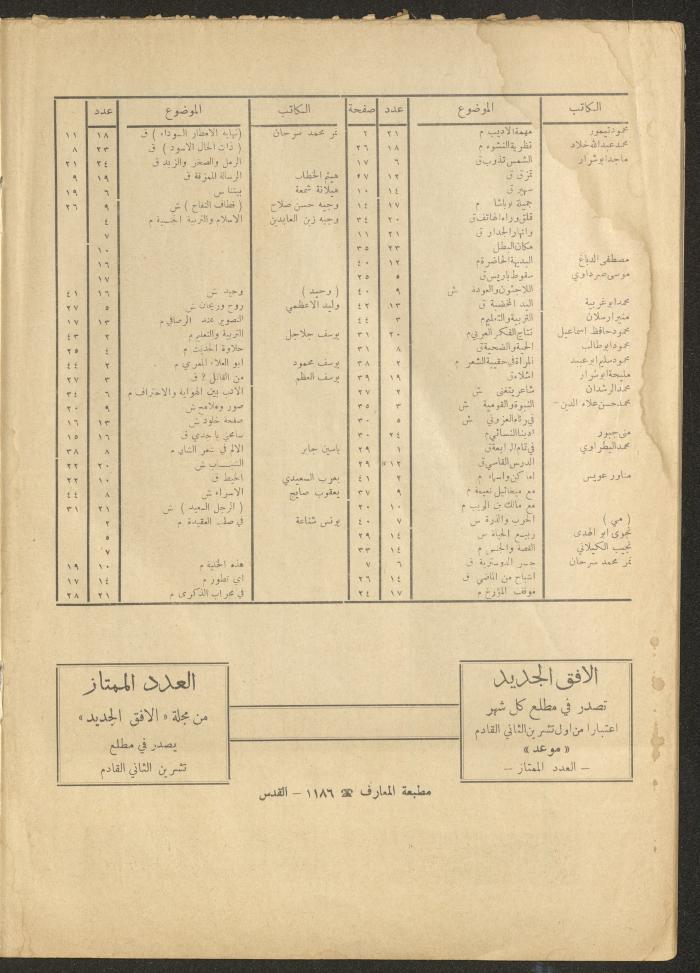 الكاتب الموضوع عدد صفحة
محمود تيمور مهمة الاديب م ٢١ ٢
محمد عبدالله خلاد نظرية النشوء م ١٨ ٢٦
ماجد ابو شرار الشمس تذوب ق ٦ ١٧
تمزق ق ١٢ ٥٧
سهير ق ١٤ ١٠
جميلة بوباشا م ١٧ ١٤
قلق وراء الهاتف ق ٢٠ ٣٤
وانهار الجدار ق ٢١ ١١
مكان البطل ٢٣ ٣٥
مصطفى الدباغ البديهة الحاضرة م ١٢ ٤٠
موسى صرداوي سقوط باريس ق ٥ ٢٥
اللاجئون والعودة ش ٩ ٤٠
محمد ابو غربية اليد المخضبة ق ١٣ ٤٢
منير ارسلان التربية والتعليم م ٣ ٤٤
محمود حافظ اسماعيل نتاج الفكر العربي م ٢٠ ٣١
محمود ابو طالب الحية والضحية ق ٨ ٣١
محمود سليم ابو عبيد المرأة في حقيبة الشعر م ٢ ٣٨
مليحة ابو شرار اشلاء ق ١٩ ٣٩
محمد الرشدان شاعر يتغنى ش ٢ ٢٧
محمد حسن علاء الدين النبوة والقومية ش ٣ ٣٥
في رثاء العزوني ش ٥ ٣٠
منى جبور ادبنا النسائي م ٢٤ ٣٠
محمد البطراوي في تمام الرابعة ق ١ ٢٩
الدرس القاسي ق ١٢ ٢٩
مناور عويس اماكن واسماء م ٢ ٤١
مع ميخائيل نعيمة م ٩ ٣٧
مع مالك بن الريب م ١٠ ٢٠
( مي ) الحرب والذرة س ٧ ٤٠
نجوى ابو الهدى ربيع الحياة س ١٤ ٢٩
نجيب الكيلاني القصة والجنس م ١٤ ٣٣
نمر محمد سرحان جسر الدوسترية ق ٦ ٧
اشباح من الماضي ق ١٤ ٢٦
موقف المؤرخ م ١٧ ٢٤
الكاتب الموضوع عدد
نمر محمد سرحان (نهاية الامطار السوداء ) ق ١٨ ١١
( ذات الخال الاسود ) ق ٢٣ ٨
الرمل والصخر والزبد ق ٢٤ ٢١
هيثم الخطاب الرسالة الممزقة ق ١٩ ٩
هيلانة شمعة بيتنا س ٦ ١٩
وجيه حسن صلاح ( قطاف التفاح ) ش ٩ ٢٦
وجيه زين العابدين الاسلام والتربية الجنسية م ٤
٧
١٠
١٦
١٧
( وحيد ) وحيد ش ١٦ ٤١
وليد الاعظمي روح وريحان ش ٥ ٢٧
التصوير عند الرصافي م ١٣ ١٧
يوسف جلاجل التربية والتعليم م ٢ ٤٣
حلاوة الحديث م ٤ ٢٥
يوسف محمود ابو العلاء المعري م ٢ ٤٤
يوسف العظم من القاتل ؟ ق ٣ ٢٧
الادب بين الهواية والاحتراف م ٦ ٣٤
صور وملامح ش ٩ ٢٠
صفحة خلود ش ١٣ ١٦
سامحني يا جدي ق ١٦ ١٥
ياسين جابر الالم في شعر الشابي م ٨ ٣٨
الشباب ش ٢٠ ٢٢
يعرب السعيدي الخيط ق ١٠ ٢٢
يعقوب صايج الاسراء ش ٨ ٤٤
( الرجل السعيد ) ش ٢١ ٣١
يونس شناعة في صلب العقيدة م ٢
٥
٧
هذه الحتمية م ١٠ ١٩
اي تطور م ١٤ ١٧
في محراب الذكرى م ٢١ ٢٨
الافق الجديد
تصدر في مطلع كل شهر
اعتبارا من اول تشرين الثاني القادم
« موعد »
– العدد الممتاز –
العدد الممتاز
من مجلة « الافق الجديد »
يصدر في مطلع
تشرين الثاني القادم
مطبعة المعارف ☎ ١١٨٦ – القدس